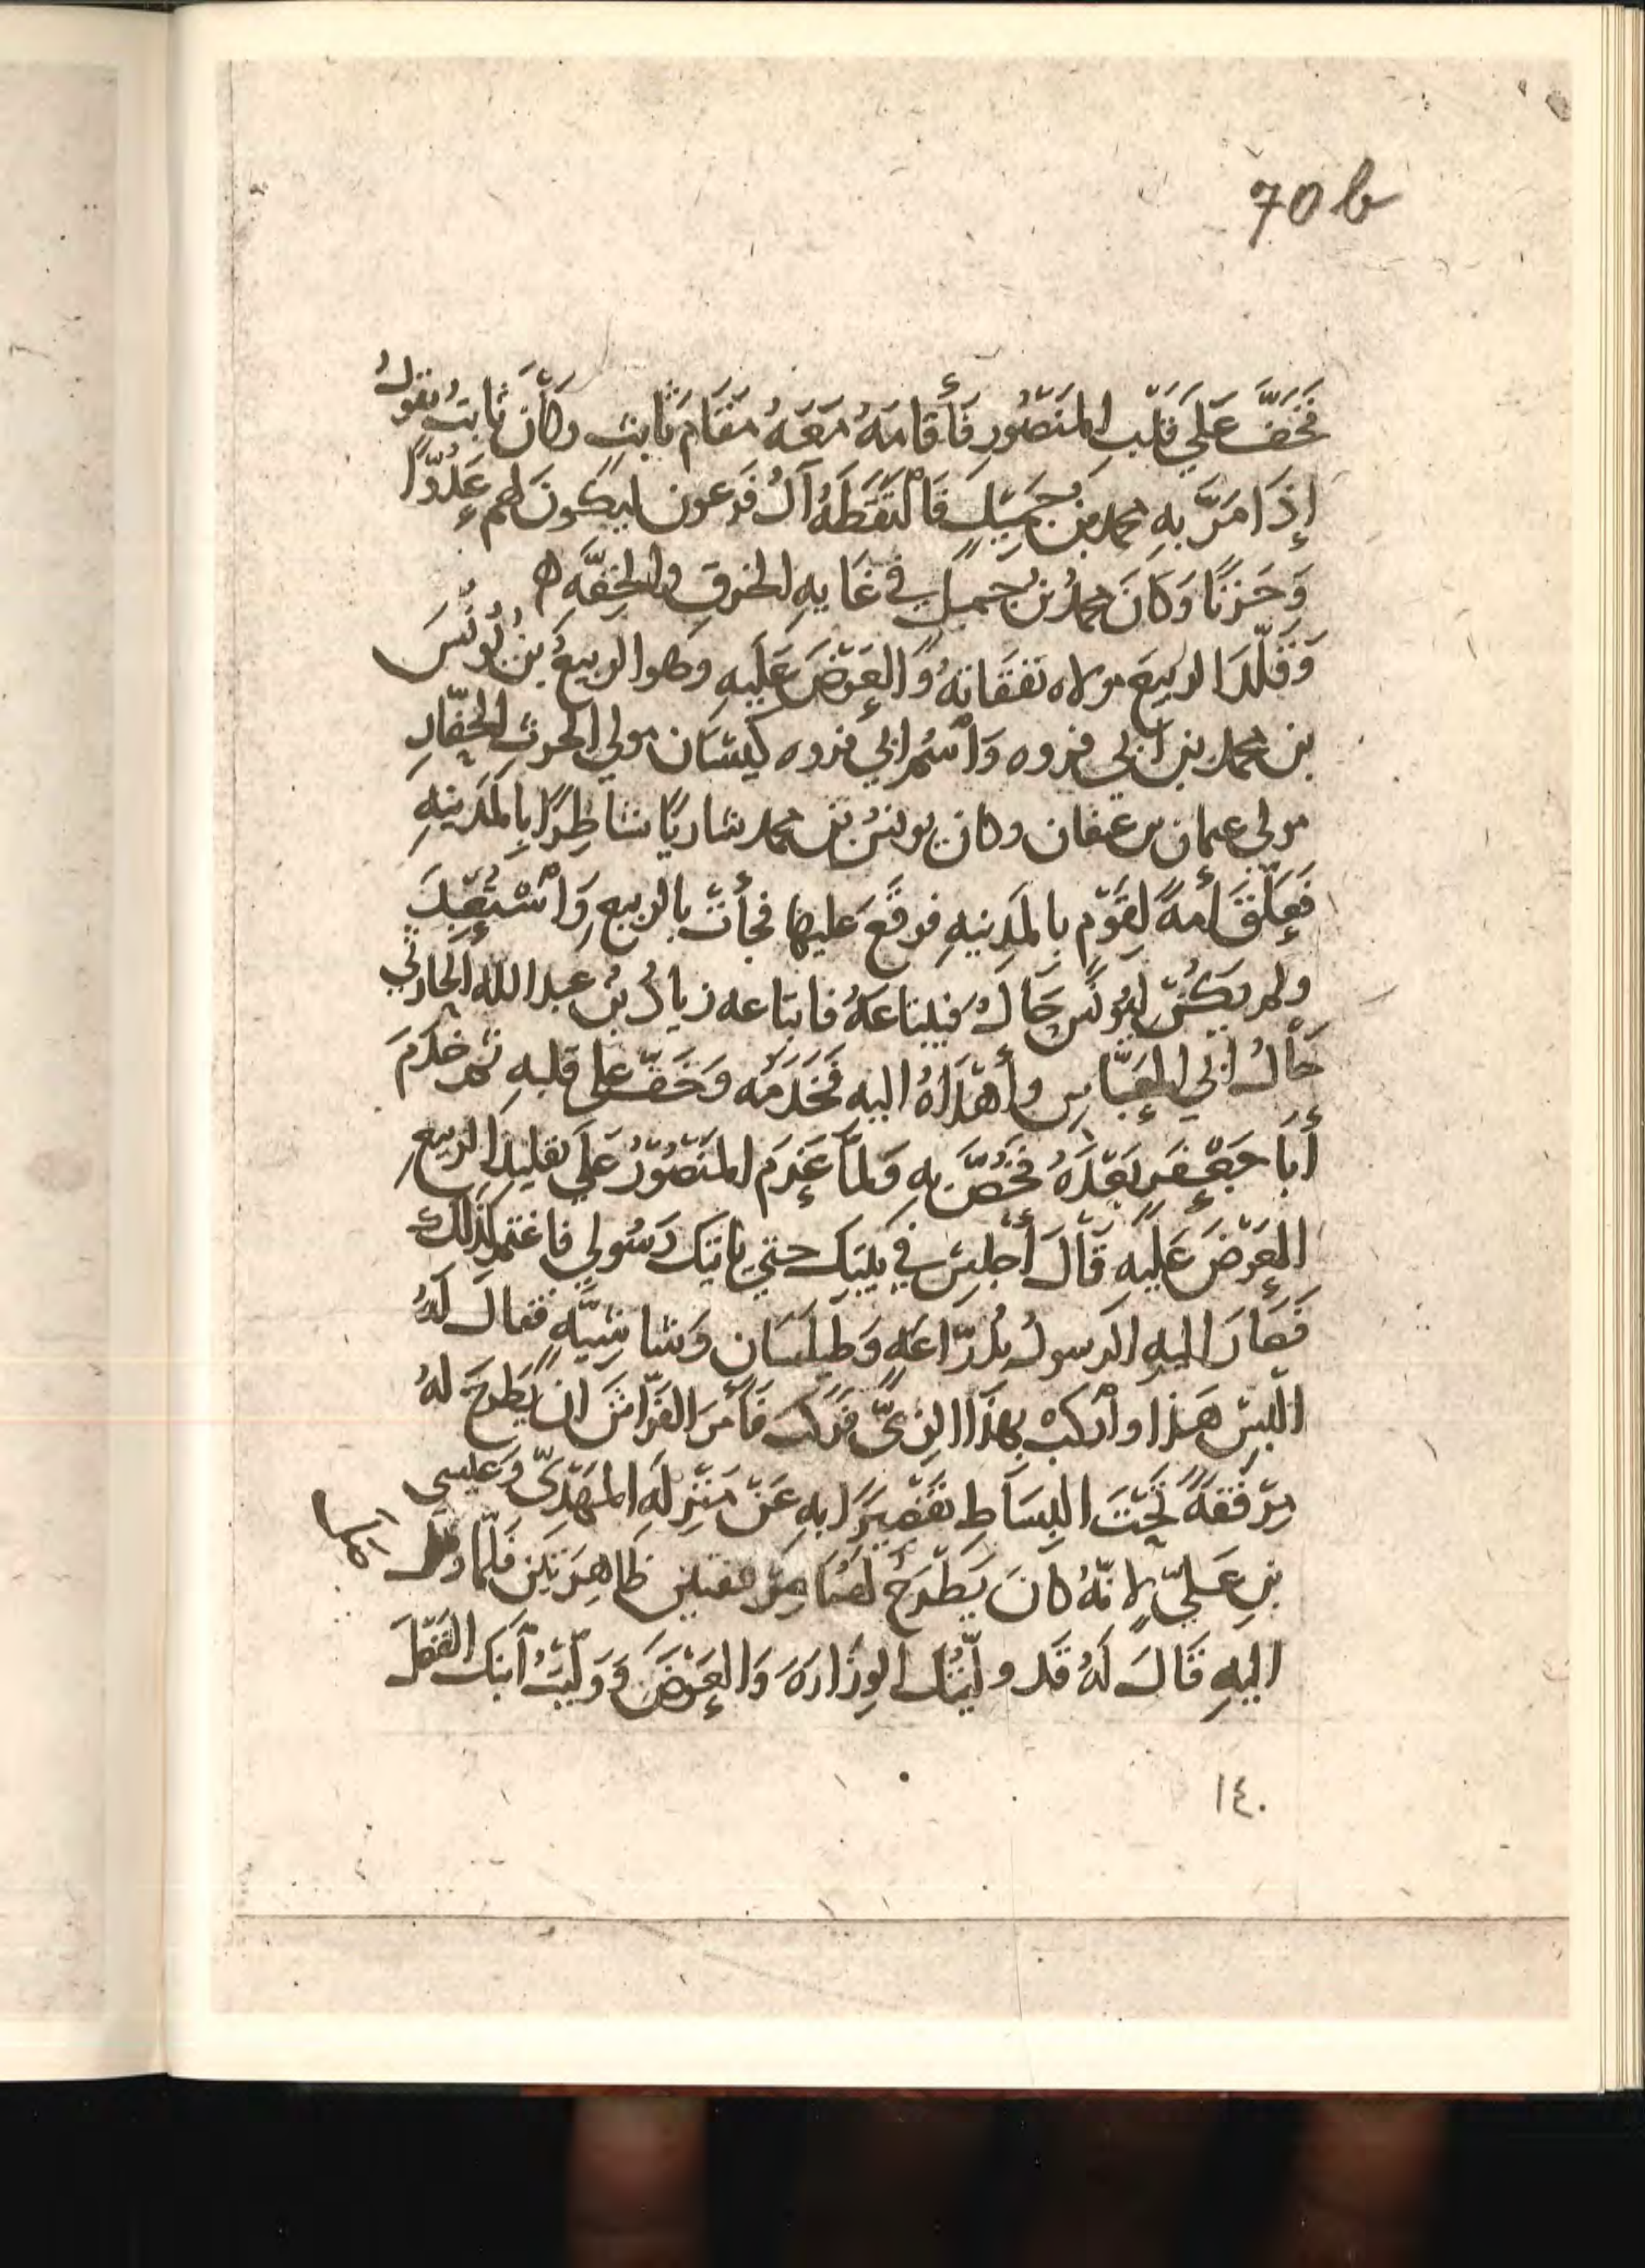 70 b
فَخَفَّ عَلَي قَلْبِ المَنْصُورِ فَأَقامَهُ مَعَهُ مَقَامَ ثَابِتٍ وكَانَ ثَابِتُ يقولُ
إِذَا مَرَّ بِهِ محمد بن جُمَيْلٍ فَالْتَقَطَهُ آلُ فَرعون ليكونَ لهم عَدُوًّا
وَحَزَنًا وَكَانَ محمدُ بن جُميلٍ في غَايهِ الخرقِ والخِفَّهِ ه
وَقَلّدَ الربيعَ مولاه نفقَاتهُ وَالعَرْضَ عَلَيهِ وهو الربيعُ بنُ يُونُسَ
بن محمد بن أبي فروه وَاسْمُ ابي فروه كيسَان مولي الحرثِ الحَفّارِ
مولي عثمان بن عفان وكان يونسُ بن محمد شاريًا شاطِرًا بِالمَدينهِ
فَعَلّقَ أمهً لقَوْمٍ بالمَدِينهِ فوقَعَ عليها فجأتْ بالربيعِ وَاسْتُعْبِدَ
ولم يَكُنْ لِيُونُسَ حَالٌ فيبتاعَهُ فابتاعه زيادُ بنُ عبد الله الحارثي
خَالُ ابي العَبَّاسِ وأَهْدَاهُ اليهِ فَخَدَمَه وَخَفّ على قلبهِ ثم خدَمَ
أبَا جَعْفَرٍ بَعْدَهُ فَخُصَّ بهِ وَلمّا عَزَمَ المَنْصُوْرُ عَلَي تقليدِ الربيعِ
العَرْضَ عَلَيهِ قَالَ أجلِسْ في بَيتِك حتي ياتيَك رَسُولي فاغتم لذلكَ
فَصَارَ اليهِ الرسولُ بدُرّاعَهٍ وَطَيلَسَانٍ وَشَاشِيَّهٍ فقالَ لَهُ
الْبِسْ هَذا وارْكَبْ بِهَذَا الزيِّ فركبَ فَأَمَرَ الفَرّاشَ ان يَطْرَحَ لهُ
مِرْفَقَهً تَحْتَ البِسَاطِ تَقْصِيْرًا بهِ عَنْ مَنْزِلَهِ المَهْدِيّ وَعيسى
بنِ عَليّ لانّهُ كانَ يَطْرَحُ لهُمَا مِرْفقتَينِ ظاهِرَتَينِ فَلَمّا دخل
اليهِ قَالَ لَهُ قَد وليتُك الوِزَارَهَ وَالعَرْضَ وَوَلّيتُ ابنَك الفَضْلَ
١٤٠